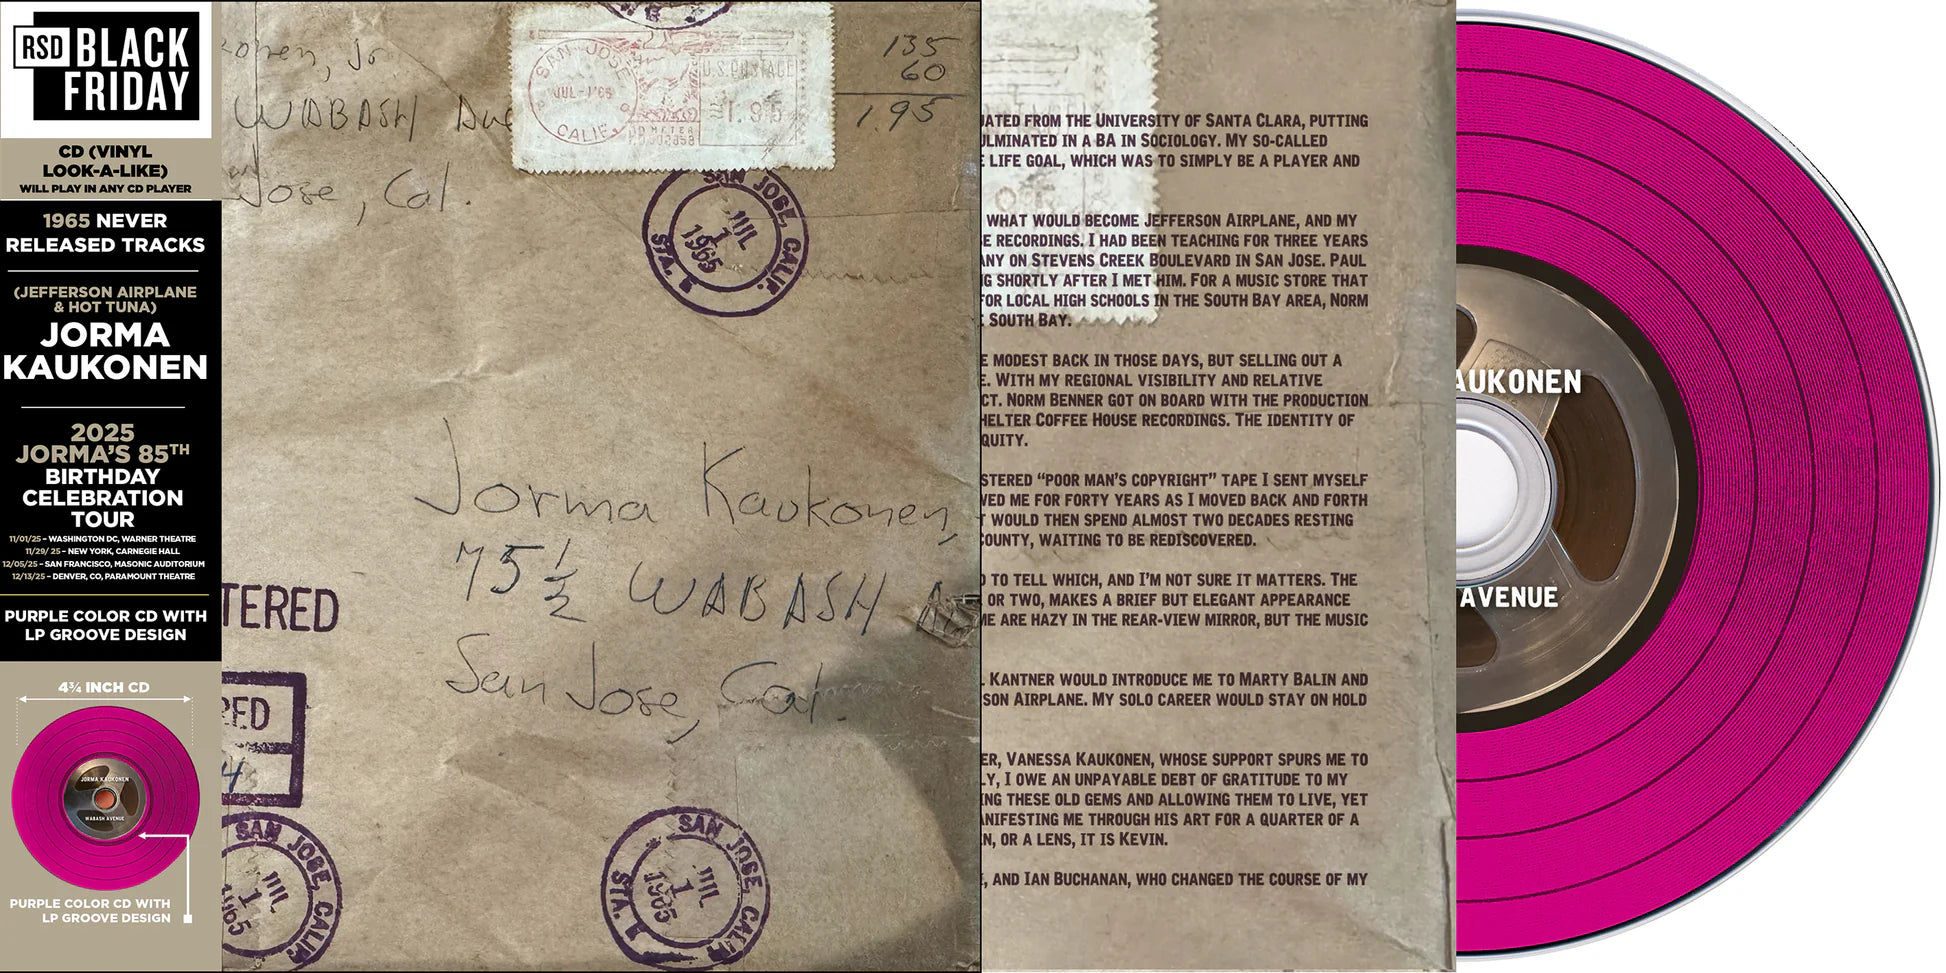 RSD BLACK
FRIDAY
CD (VINYL
LOOK-A-LIKE)
WILL PLAY IN ANY CD PLAYER
1965 NEVER
RELEASED TRACKS
(JEFFERSON AIRPLANE
& HOT TUNA)
JORMA
KAUKONEN
2025
JORMA'S 85TH
BIRTHDAY
CELEBRATION
TOUR
11/01/25 – WASHINGTON DC, WARNER THEATRE
11/29/ 25 – NEW YORK, CARNEGIE HALL
12/05/25 – SAN FRANCISCO, MASONIC AUDITORIUM
12/13/25 – DENVER, CO, PARAMOUNT THEATRE
PURPLE COLOR CD WITH
LP GROOVE DESIGN
4¾ INCH CD
JORMA KAUKONEN
WABASH AVENUE
PURPLE COLOR CD WITH
LP GROOVE DESIGN
WABASH Ave
Jose, Cal.
SAN JOSE
JUL-1'65
CALIF.
U.S. POSTAGE
1.95
135
60
1.95
SAN JOSE, CALIF.
JUL
1
1965
STA.
Jorma Kaukonen,
75 1/2 WABASH
San Jose, Cal.
TERED
RED
4
SAN JOSE, CALIF.
JUL
1
1965
SAN JOSE, CALIF.
JUL
1
1965
STA.
UATED FROM THE UNIVERSITY OF SANTA CLARA, PUTTING
ULMINATED IN A BA IN SOCIOLOGY. MY SO-CALLED
E LIFE GOAL, WHICH WAS TO SIMPLY BE A PLAYER AND
WHAT WOULD BECOME JEFFERSON AIRPLANE, AND MY
SE RECORDINGS. I HAD BEEN TEACHING FOR THREE YEARS
ANY ON STEVENS CREEK BOULEVARD IN SAN JOSE. PAUL
NG SHORTLY AFTER I MET HIM. FOR A MUSIC STORE THAT
FOR LOCAL HIGH SCHOOLS IN THE SOUTH BAY AREA, NORM
E SOUTH BAY.
E MODEST BACK IN THOSE DAYS, BUT SELLING OUT A
E. WITH MY REGIONAL VISIBILITY AND RELATIVE
CT. NORM BENNER GOT ON BOARD WITH THE PRODUCTION
HELTER COFFEE HOUSE RECORDINGS. THE IDENTITY OF
QUITY.
STERED “POOR MAN’S COPYRIGHT” TAPE I SENT MYSELF
WED ME FOR FORTY YEARS AS I MOVED BACK AND FORTH
T WOULD THEN SPEND ALMOST TWO DECADES RESTING
COUNTY, WAITING TO BE REDISCOVERED.
D TO TELL WHICH, AND I’M NOT SURE IT MATTERS. THE
OR TWO, MAKES A BRIEF BUT ELEGANT APPEARANCE
ME ARE HAZY IN THE REAR-VIEW MIRROR, BUT THE MUSIC
L KANTNER WOULD INTRODUCE ME TO MARTY BALIN AND
SON AIRPLANE. MY SOLO CAREER WOULD STAY ON HOLD
ER, VANESSA KAUKONEN, WHOSE SUPPORT SPURS ME TO
LY, I OWE AN UNPAYABLE DEBT OF GRATITUDE TO MY
ING THESE OLD GEMS AND ALLOWING THEM TO LIVE, YET
ANIFESTING ME THROUGH HIS ART FOR A QUARTER OF A
N, OR A LENS, IT IS KEVIN.
E, AND IAN BUCHANAN, WHO CHANGED THE COURSE OF MY
AUKONEN
AVENUE